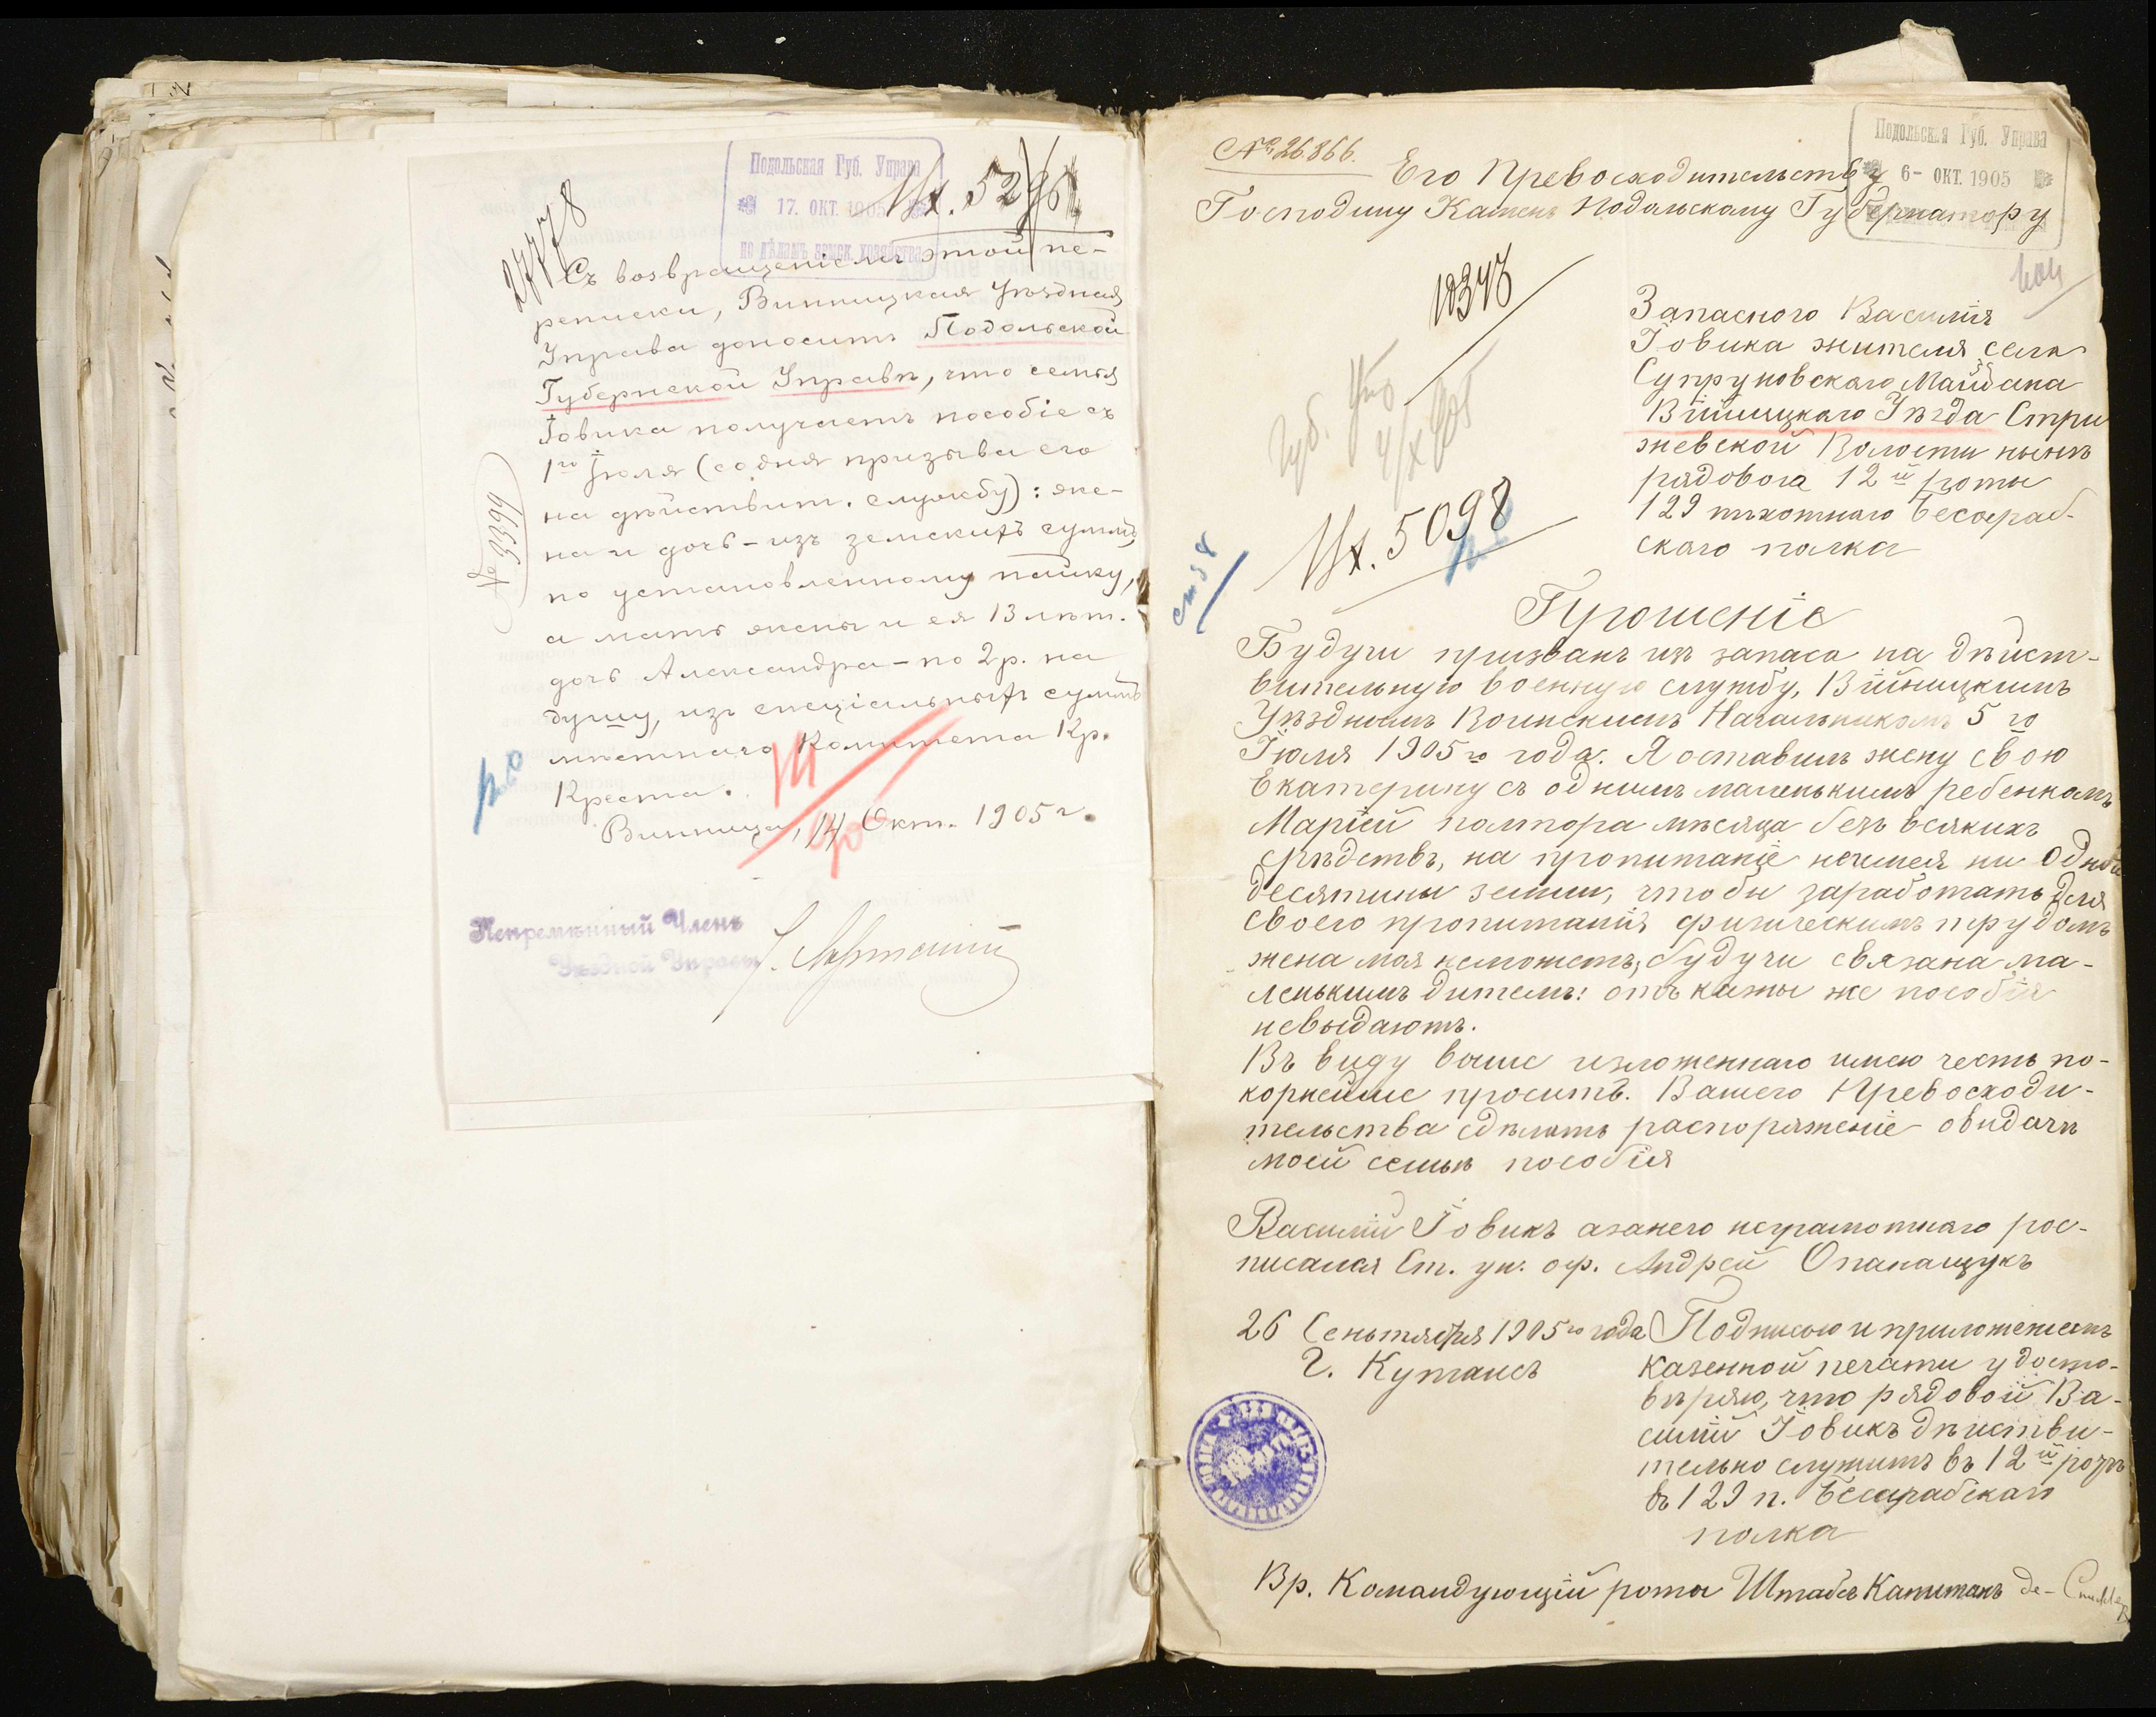 Подольская Губ. Управа
17. ОКТ. 1905
по дѣламъ земск. хозяйства
27778
Вх. 52
Съ возвращеніемъ этой пе-
реписки, Винницкая Уѣздная
Управа доноситъ Подольской
Губернской Управѣ, что семья
Іовика получаетъ пособіе съ
1го Іюля (со дня призыва его
на дѣйствит. службу): же-
на и дочь - изъ земскихъ суммъ,
по установленному пайку,
а мать жены и ея 13 лѣт.
дочь Александра - по 2 р. на
душу, изъ спеціальныхъ суммъ
мѣстнаго Комитета Кр.
Креста.
Винница, 14 Окт. 1905 г.
№ 9999
Непремѣнный Членъ
Уѣздной Управы
№ 26866.
Подольская Губ. Управа
6- ОКТ. 1905
Его Превосходительству
Господину Камен. Подольскому Губернатору
Запасного Василія
Іовика жителя села
Супруновскаго Майдана
Війницкаго Уѣзда Стри
жевской Волости нынѣ
рядовога 12й роты
129 пѣхотнаго Бесараб-
скаго полка
Вх. 5098
ст 58
Прошеніе
Будучи призванъ изъ запаса на дѣйст-
вительную военную службу, Війницкимъ
Уѣзднымъ Воинскимъ Начальникомъ 5 го
Іюля 1905 го года. Я оставилъ жену свою
Екатерину съ однимъ маленькимъ ребенкомъ
Маріей полтора мѣсяца безъ всякихъ
срѣдствъ, на пропитаніе неимея ни одной
десятины земли, чтобы заработать для
своего пропитанія физическимъ трудомъ
жена моя неможетъ, будучи связана ма-
ленькимъ дитемъ: отъ казны же пособія
невыдаютъ.
Въ виду выше изложеннаго имею честь по-
корнейше просить. Вашего Превосходи-
тельства сдѣлать распоряженіе овидачѣ
моей семьѣ пособія
Василій Іовикъ азанего неграмотнаго рос-
писался Ст. ун. оф. Андрей Опанащукъ
26 Сеньтября 1905 го года
Г. Кутаисъ
Подписью и приложеніемъ
казенной печати удосто-
вѣряю, что рядовой Ва-
силій Іовикъ дѣйстви-
тельно служитъ въ 12й ротѣ
въ 129 п. Бесарабскаго
полка
Вр. Командующій рота Штабсъ Капитанъ де-